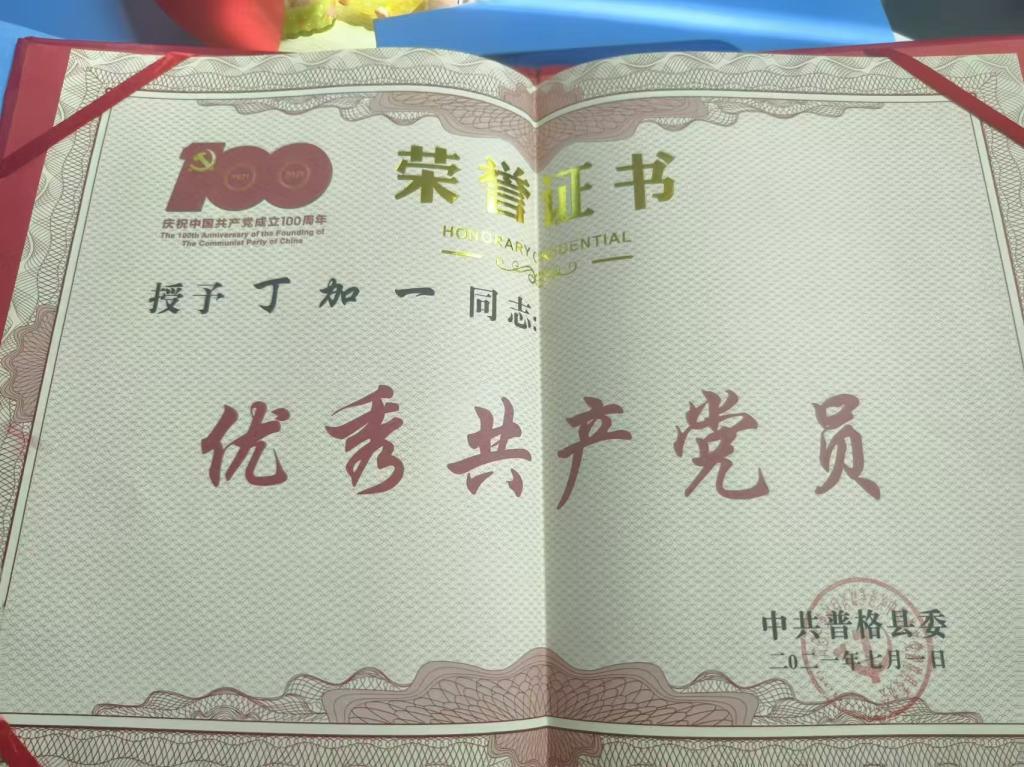 100
1921
2021
庆祝中国共产党成立100周年
The 100th Anniversary of the Founding of
The Communist Party of China
荣誉证书
HONORARY CREDENTIAL
授予 丁加一 同志:
优秀共产党员
中共普格县委
二0二一年七月一日